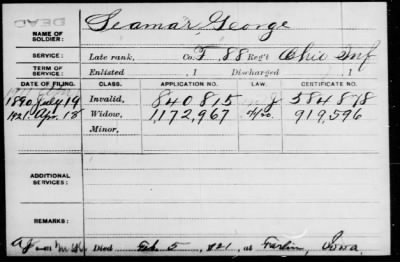 DEAD
NAME OF SOLDIER: Seamar, George
SERVICE: Late rank, Co. F, 88 Reg't Ohio Inf
TERM OF SERVICE: Enlisted , 1 Discharged , 1
DATE OF FILING. CLASS. APPLICATION NO. LAW. CERTIFICATE NO.
1890 July 19 Invalid, 840815 584878
1921. Apr. 18 Widow, 1,172,967 919,596
Minor,
ADDITIONAL SERVICES:
REMARKS:
Died Feb 5, 1921, at Farlin, Iowa